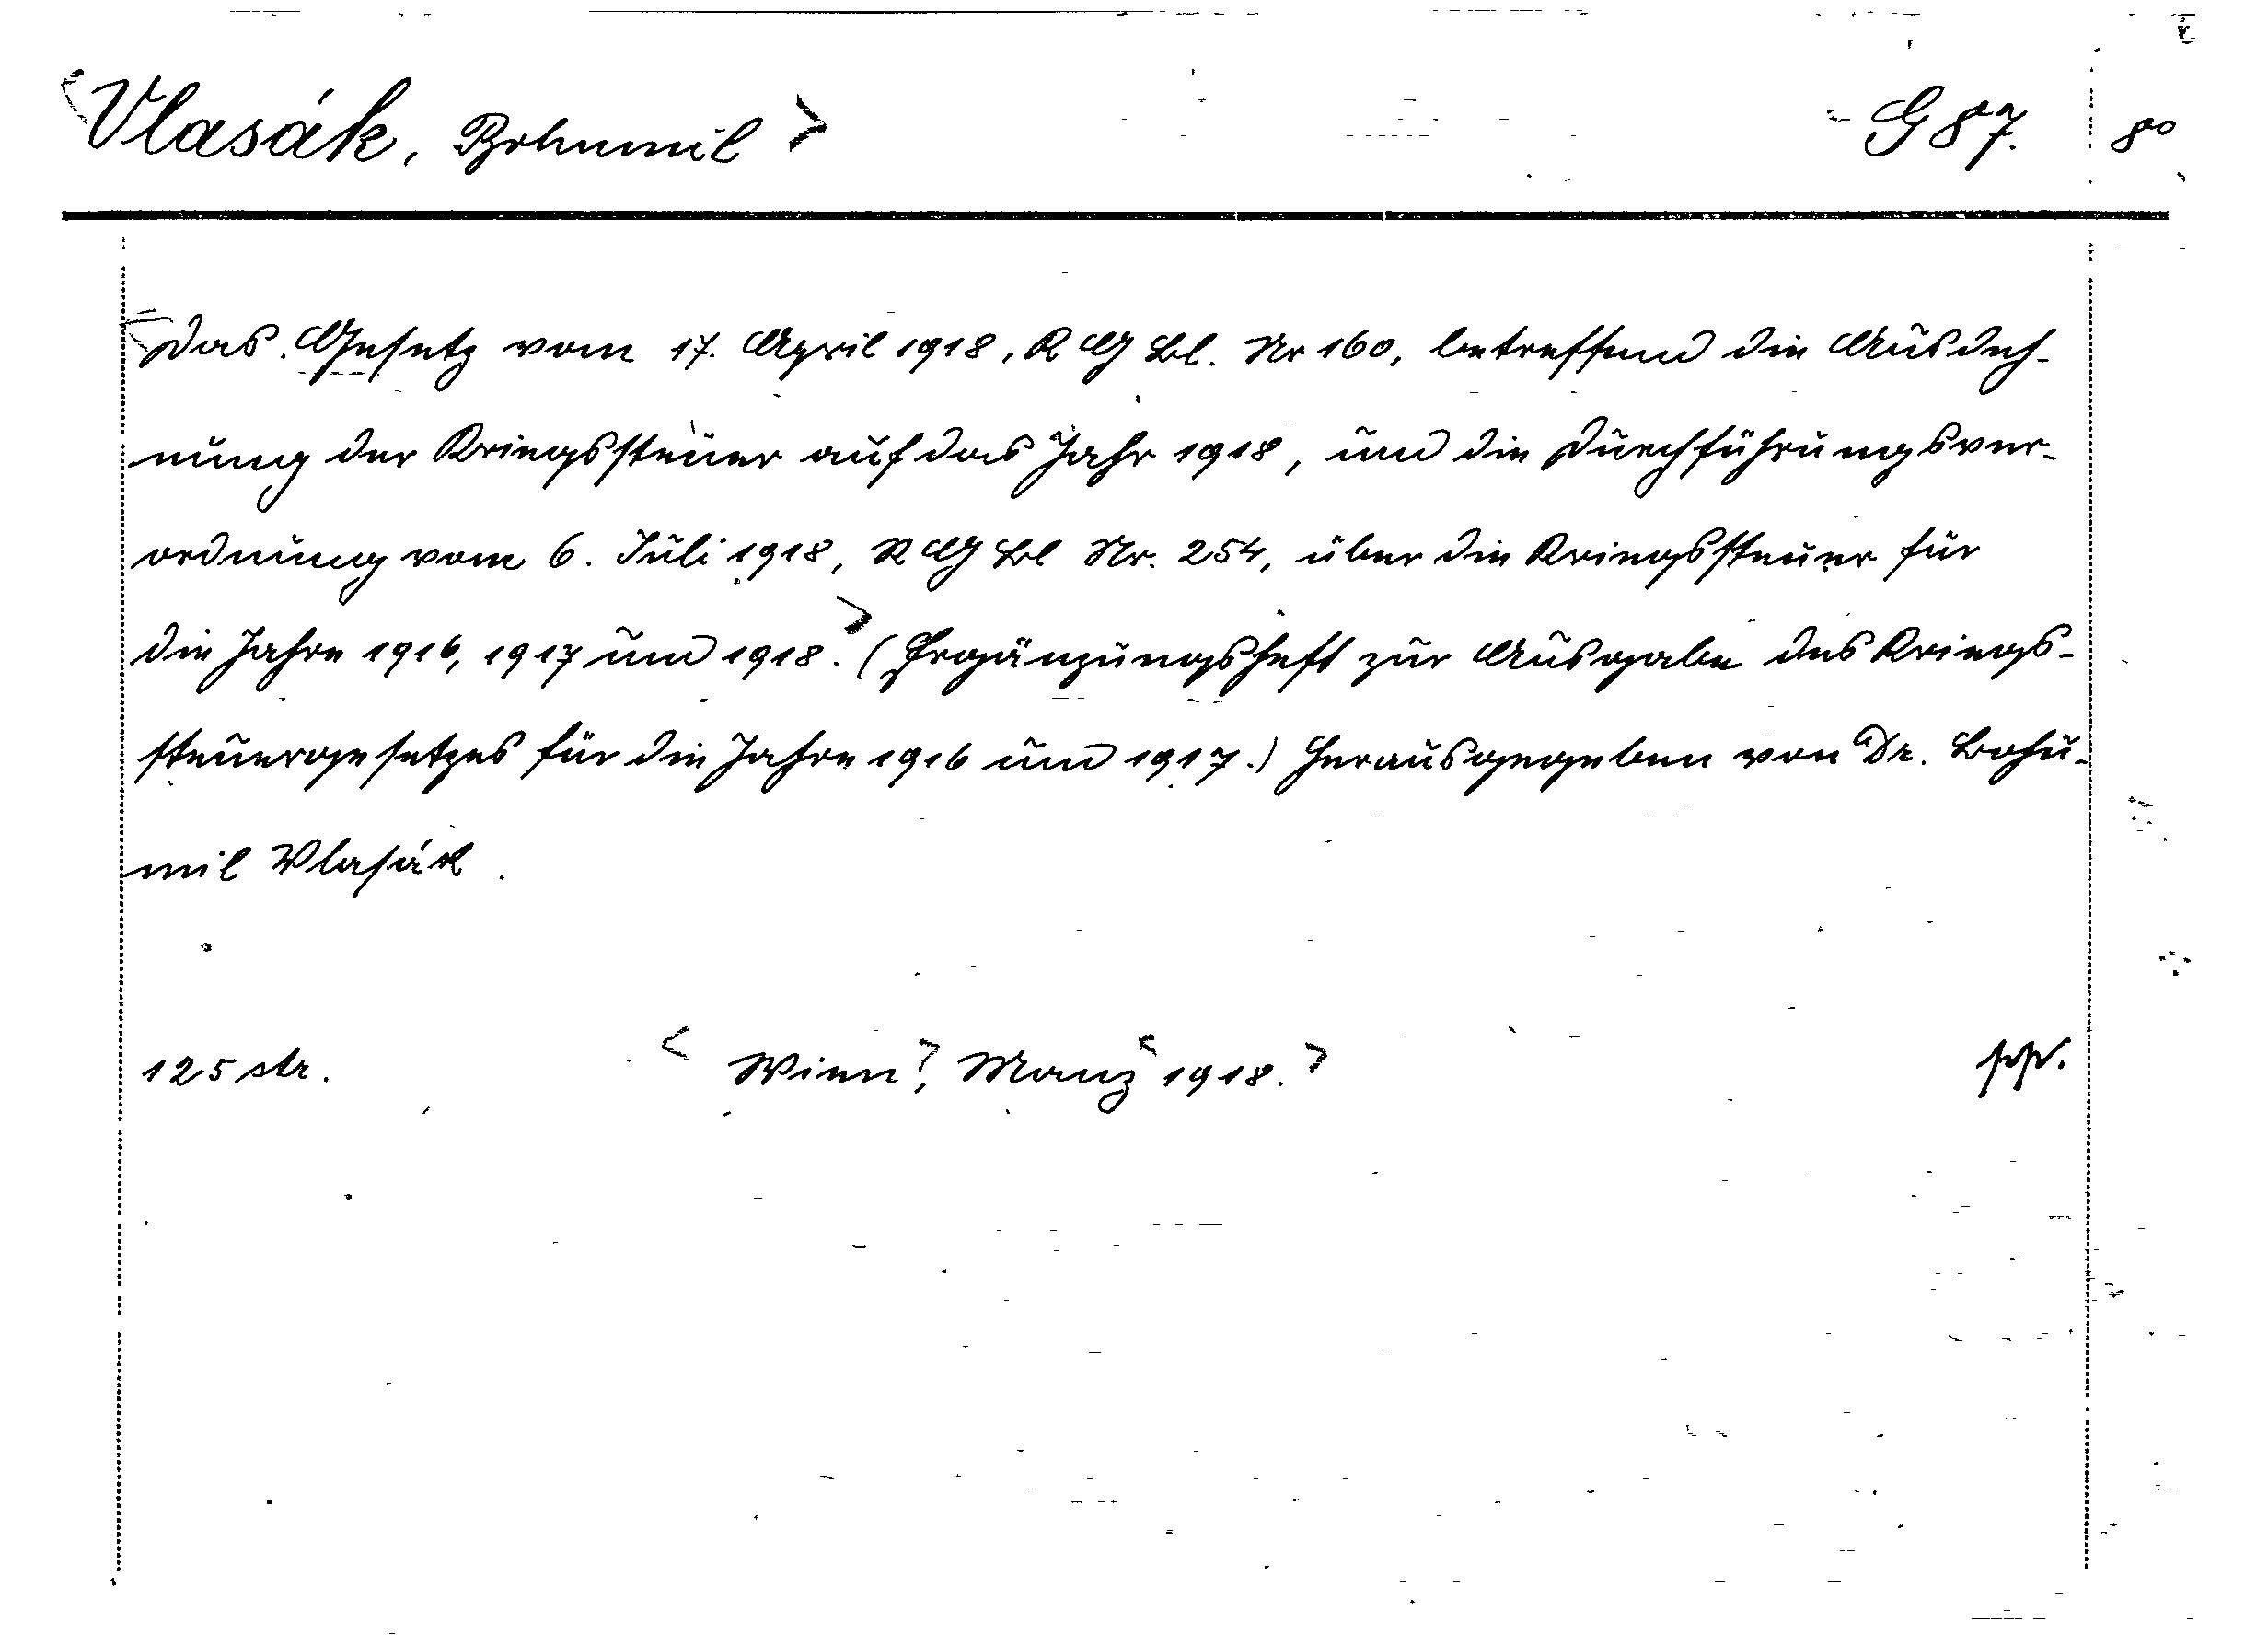 <Vlasák, Bohumil> G 87. 8°
<Das Gesetz vom 17. April 1918, R G Bl. Nr 160, betreffend die Ausdeh-
nung der Kriegssteuer auf das Jahr 1918, und die Durchführungsver-
ordnung vom 6. Juli 1918, R G Bl Nr. 254, über die Kriegssteuer für
die Jahre 1916, 1917 und 1918.> (Ergänzungsheft zur Ausgabe des Kriegs-
steuergesetzes für die Jahre 1916 und 1917.) Herausgegeben von Dr. Bohu-
mil Vlasák.
125 str. <Wien>, Manz <1918.>